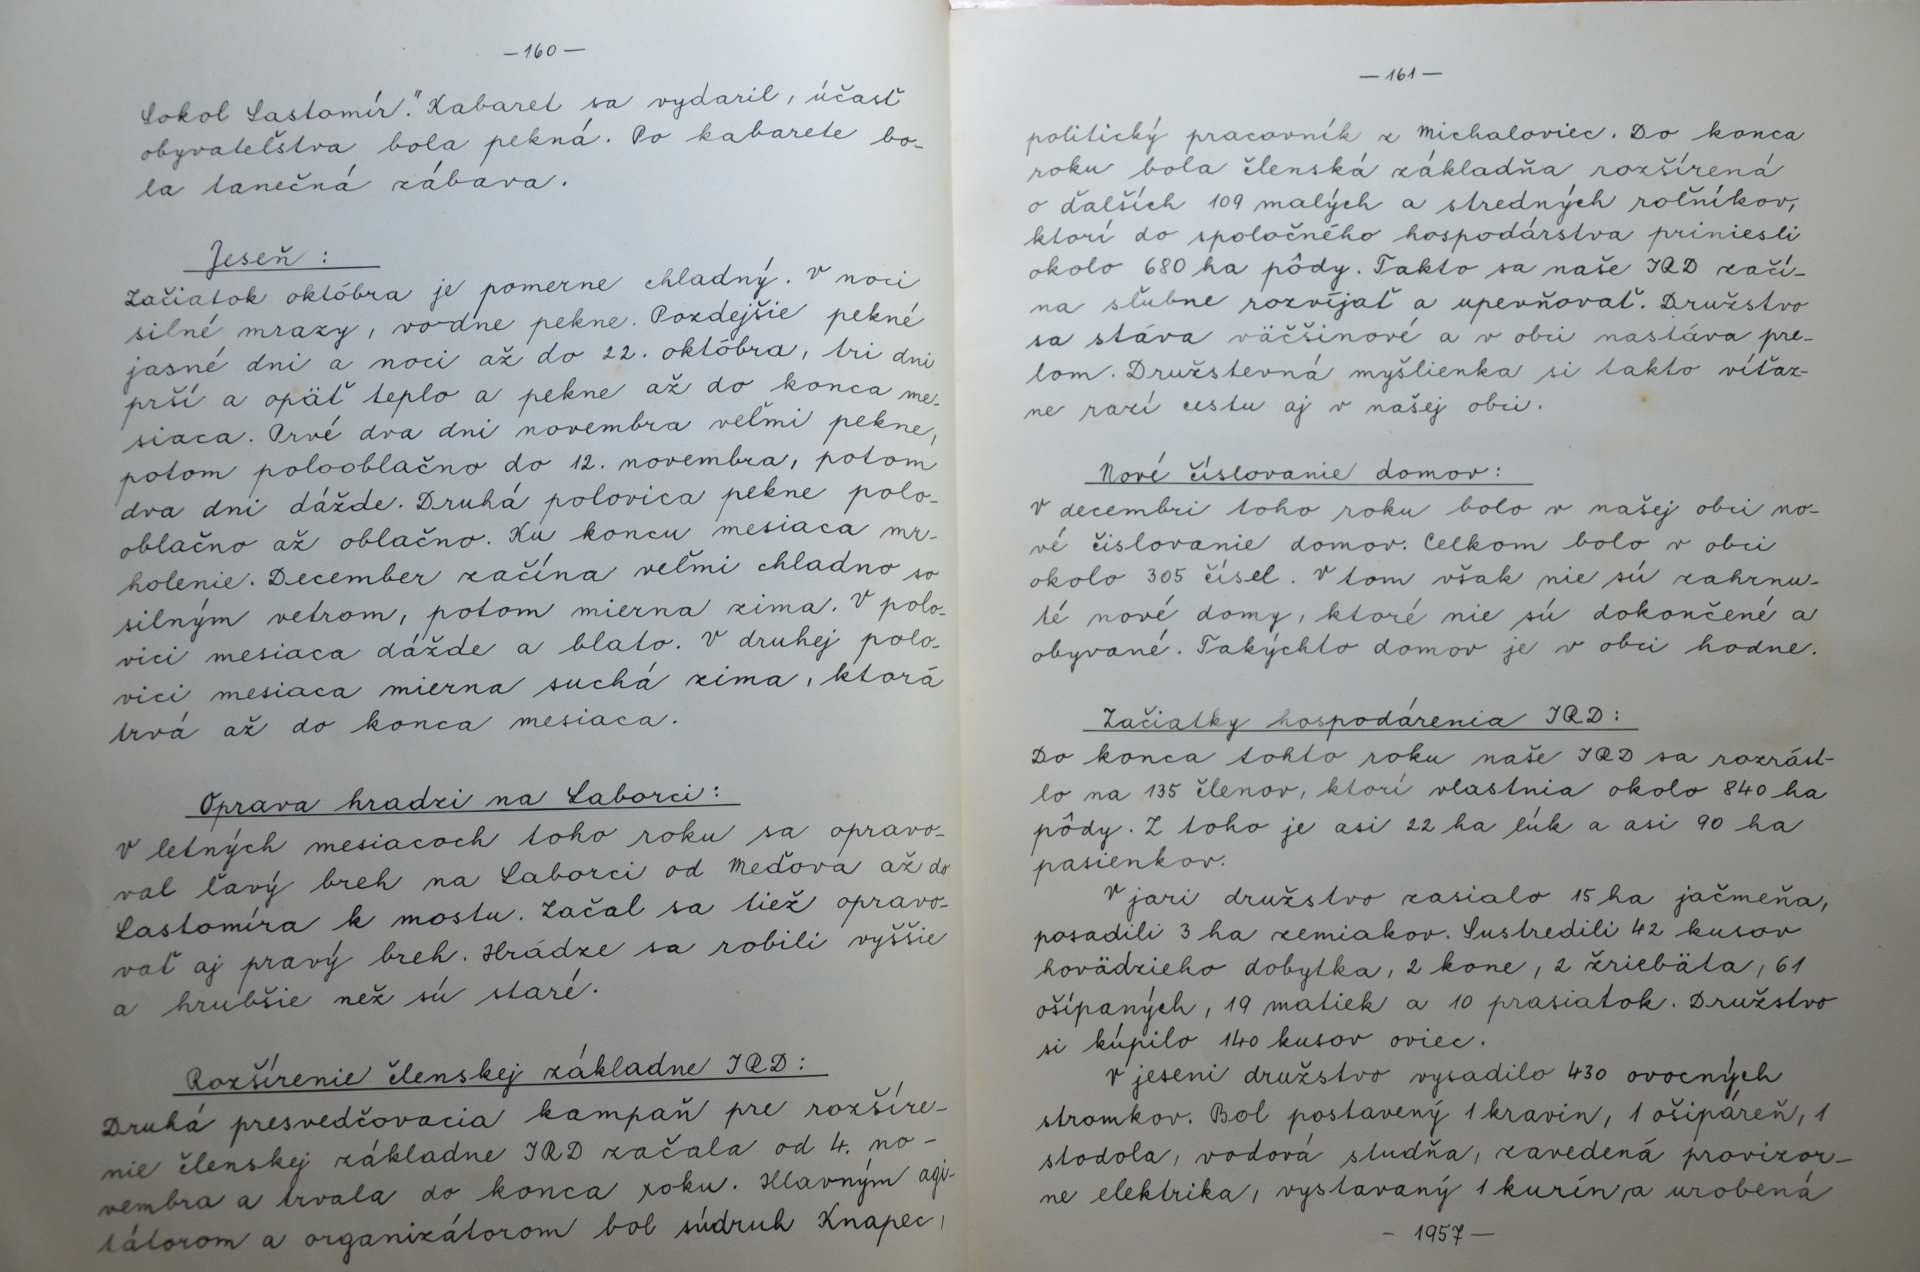 — 160 —
Sokol Lastomír." Kabaret sa vydaril, účasť
obyvateľstva bola pekná. Po kabarete bo-
la tanečná zábava.
Jeseň :
Začiatok októbra je pomerne chladný. V noci
silné mrazy, vo dne pekne. Pozdejšie pekné
jasné dni a noci až do 22. októbra, tri dni
prší a opäť teplo a pekne až do konca me-
siaca. Prvé dva dni novembra veľmi pekne,
potom polooblačno do 12. novembra, potom
dva dni dážde. Druhá polovica pekne polo-
oblačno až oblačno. Ku koncu mesiaca mr-
holenie. December začína veľmi chladno so
silným vetrom, potom mierna zima. V polo-
vici mesiaca dážde a blato. V druhej polo-
vici mesiaca mierna suchá zima, ktorá
trvá až do konca mesiaca.
Oprava hradzi na Laborci :
V letných mesiacoch toho roku sa opravo-
val ľavý breh na Laborci od Meďova až do
Lastomíra k mostu. Začal sa tiež opravo-
vať aj pravý breh. Hrádze sa robili vyššie
a hrubšie než sú staré.
Rozšírenie členskej základne JRD :
Druhá presvedčovacia kampaň pre rozšíre-
nie členskej základne JRD začala od 4. no-
vembra a trvala do konca roku. Hlavným agi-
tátorom a organizátorom bol súdruh Knapec,
— 161 —
politický pracovník z Michaloviec. Do konca
roku bola členská základňa rozšírená
o ďalších 109 malých a stredných roľníkov,
ktorí do spoločného hospodárstva priniesli
okolo 680 ha pôdy. Takto sa naše JRD začí-
na sľubne rozvíjať a upevňovať. Družstvo
sa stáva väčšinové a v obci nastáva pre-
lom. Družstevná myšlienka si takto víťaz-
ne razí cestu aj v našej obci.
Nové číslovanie domov :
V decembri toho roku bolo v našej obci no-
vé čislovanie domov. Celkom bolo v obci
okolo 305 čísel. V tom však nie sú zahrnu-
té nové domy, ktoré nie sú dokončené a
obyvané. Takýchto domov je v obci hodne.
Začiatky hospodárenia JRD :
Do konca tohto roku naše JRD sa rozrást-
lo na 135 členov, ktorí vlastnia okolo 840 ha
pôdy. Z toho je asi 22 ha lúk a asi 90 ha
pasienkov.
V jari družstvo zasialo 15 ha jačmeňa,
posadili 3 ha zemiakov. Sustredili 42 kusov
hovädzieho dobytka, 2 kone, 2 žriebäta, 61
ošípaných, 19 matiek a 10 prasiatok. Družstvo
si kúpilo 140 kusov oviec.
V jeseni družstvo vysadilo 430 ovocných
stromkov. Bol postavený 1 kravin, 1 ošipáreň, 1
stodola, vodová studňa, zavedená provizor-
ne elektrika, vystavaný 1 kurín, a urobená
- 1957 —